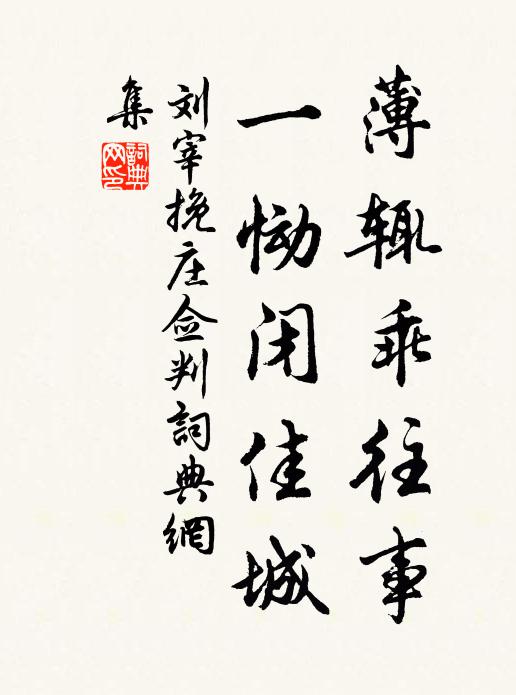 薄辄乖往事
一恸闭佳城
刘宰挽庄佥判詞典網
集
詞典网